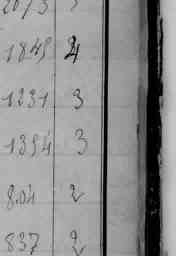 1845 4
1231 3
1354 3
804 2
837 2